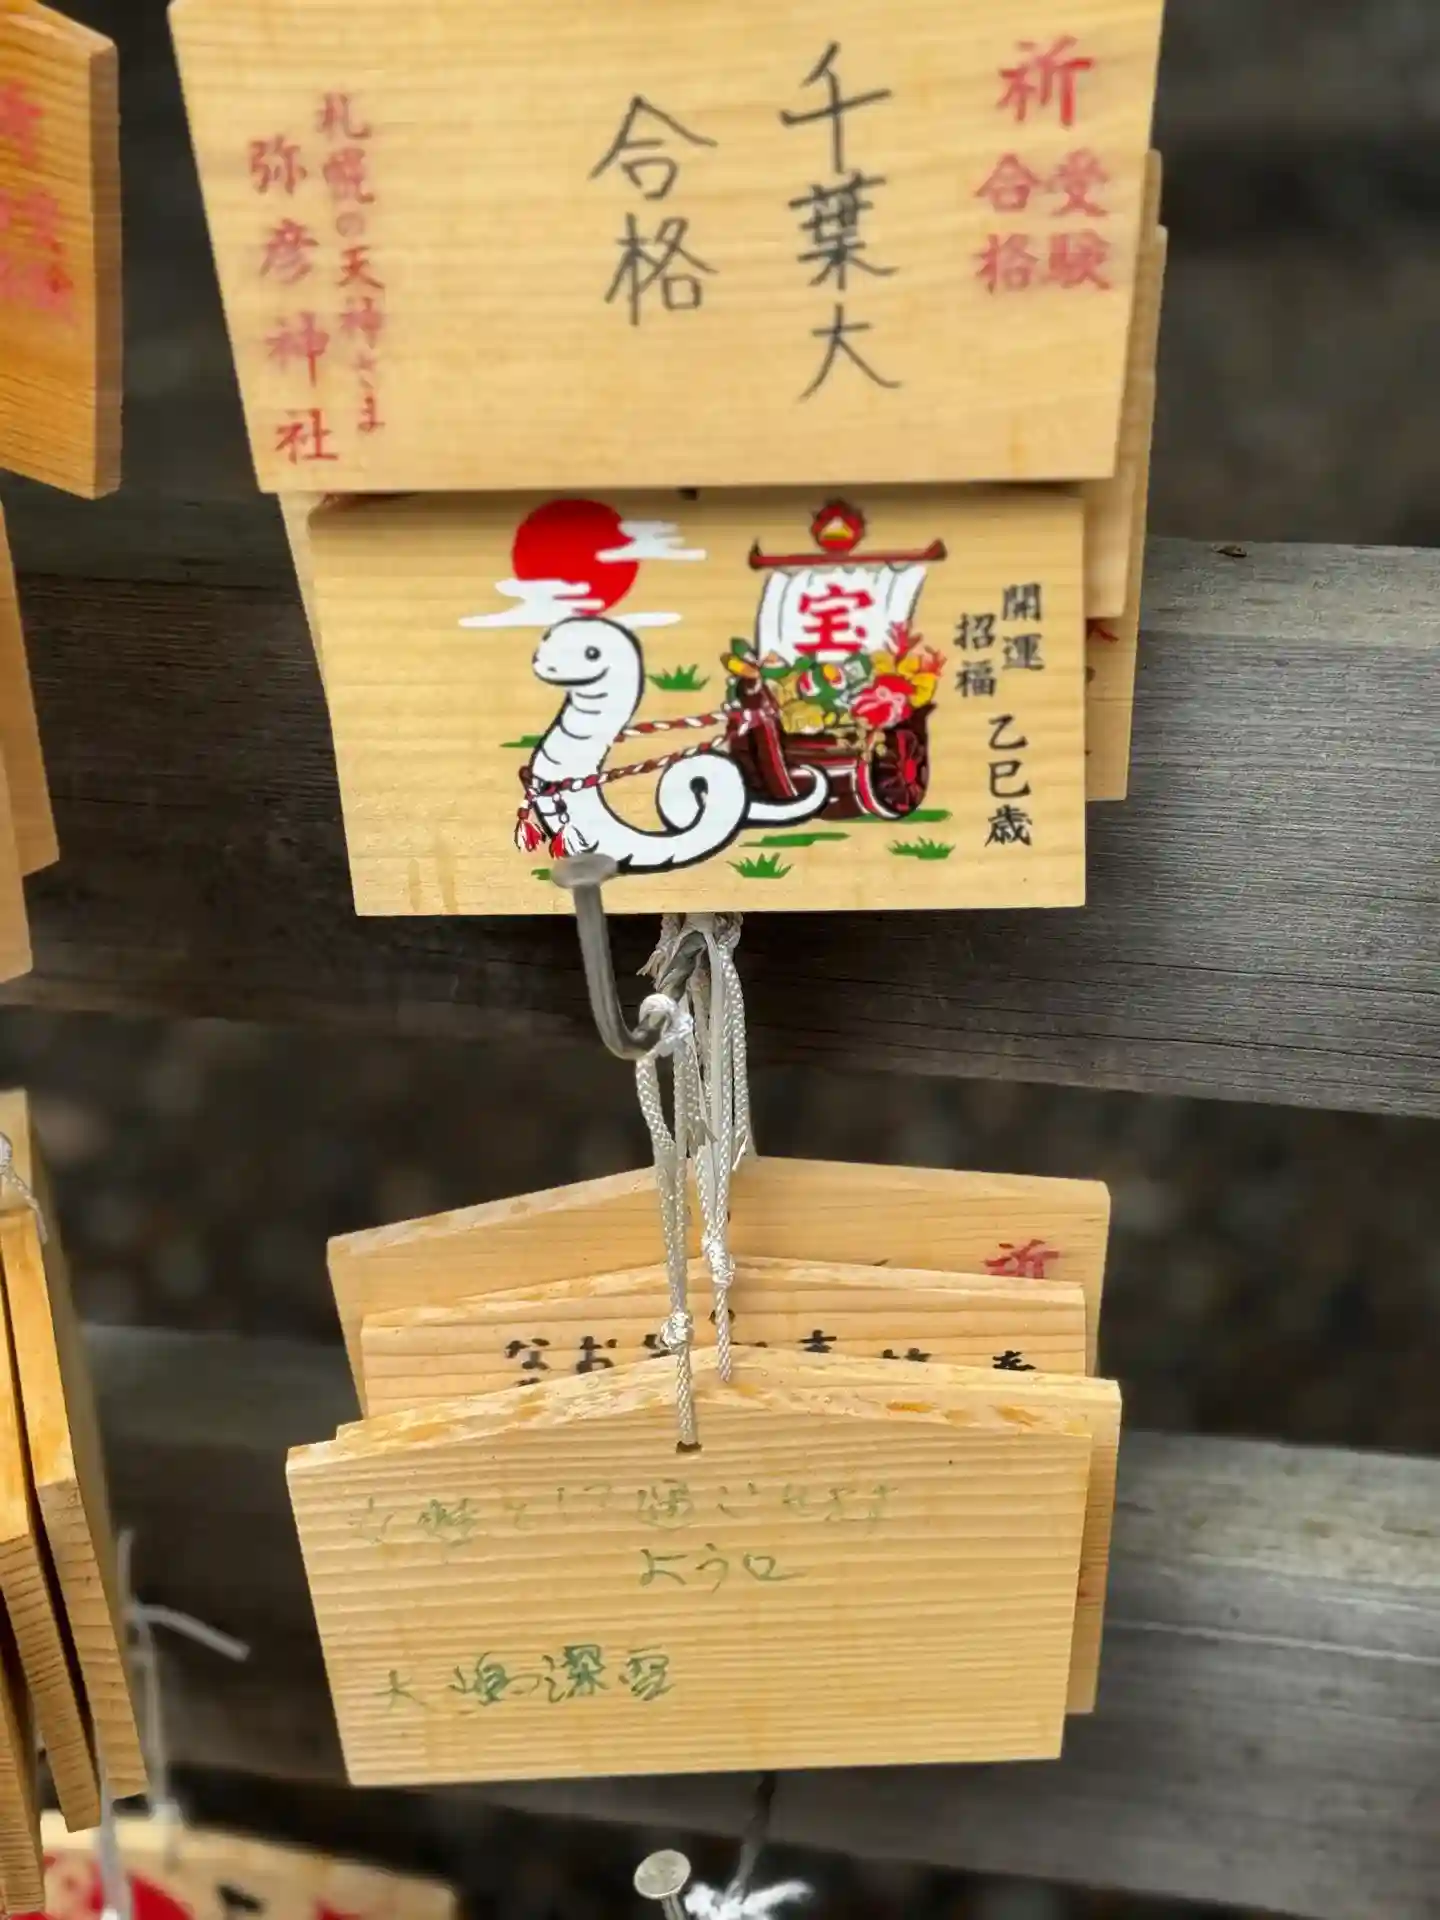 祈
受験
合格
千葉大
合格
札幌の天神さま
弥彦神社
宝
開運
招福
乙巳歳
祈
なお
過ごせます
ように
大嶋深雪